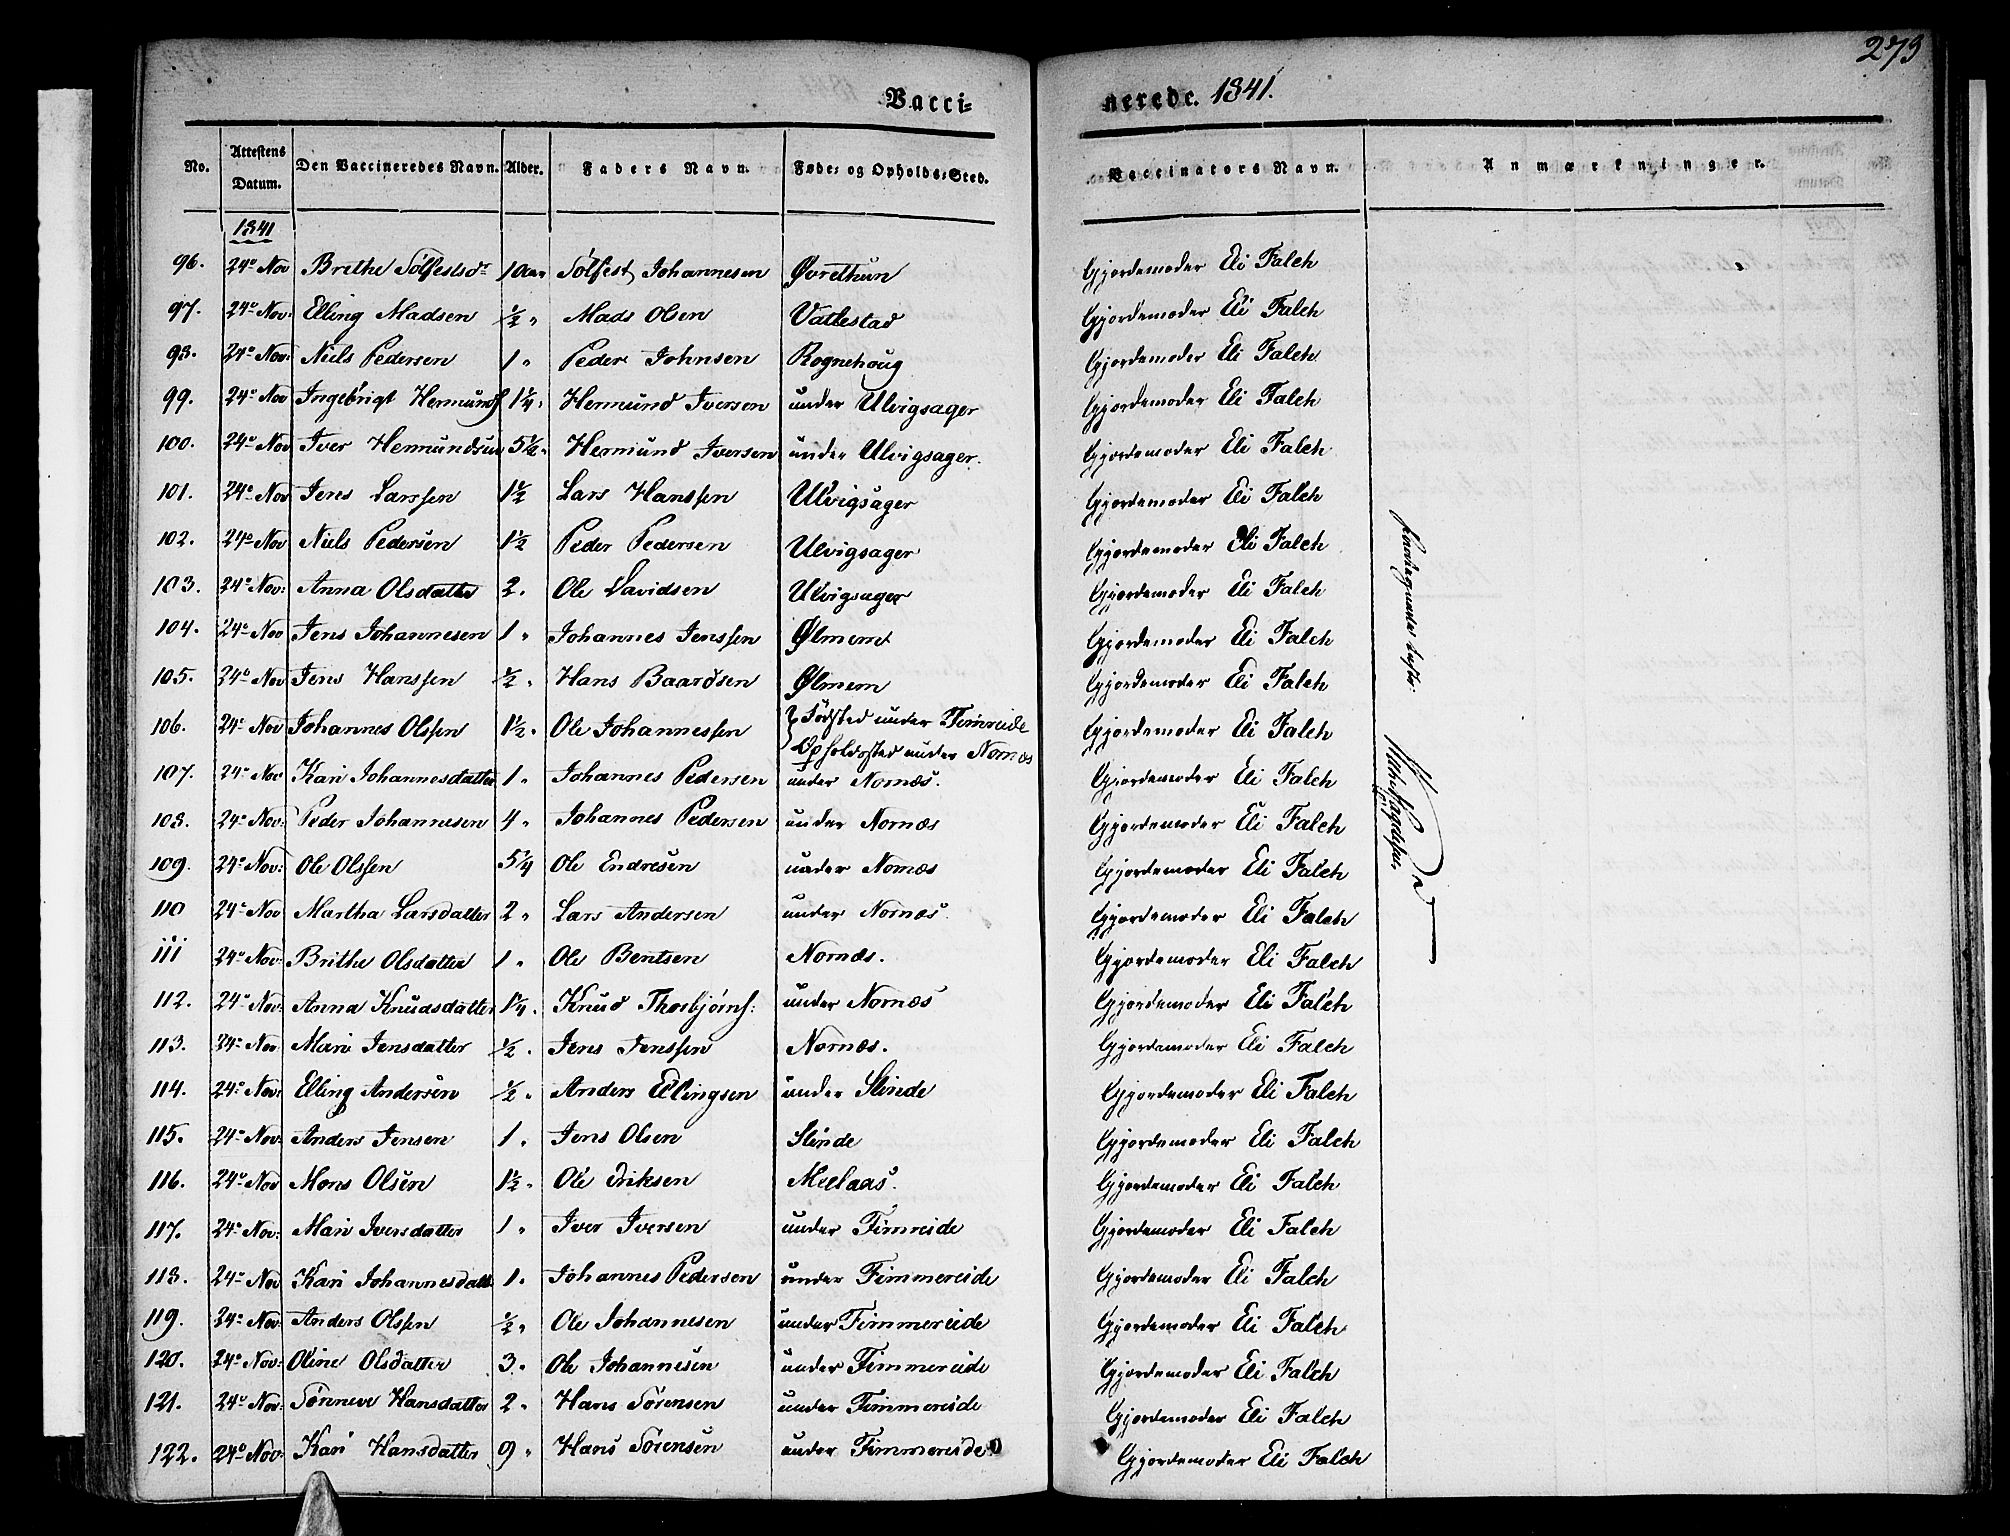 273
Vacci=
nerede. 1841.
No. Attestens Datum. Den Vaccineredes Navn. Alder. Faders Navn. Føde= og Opholds=Sted. Vaccinators Navn. Anmærkninger.
1841
96. 24de Nov Brithe Solfestsdr 10 aar Solfest Johannesen Øvrethun Gjordemoder Eli Falch
97. 24de Nov: Elling Madsen 1/2 " Mads Olsen Vatlestad Gjordemoder Eli Falch
98. 24de Nov: Niels Pedersen 1 " Peder Johnsen Rognehoug Gjordemoder Eli Falch
99. 24de Nov Ingebrigt Hermunds 1 1/4 " Hermund Iversen under Ulvigsager Gjordemoder Eli Falch
100. 24de Nov Iver Hermundsen 5 1/2 " Hermund Iversen under Ulvigsager. Gjordemoder Eli Falch
101. 24de Nov Jens Larssen 1 1/2 Lars Hanssen Ulvigsager Gjordemoder Eli Falch
102. 24de Nov Niels Pedersen 1 1/2 Peder Pedersen Ulvigsager Gjordemoder Eli Falch
103. 24de Nov: Anna Olsdatter 2. Ole Davidsen Ulvigsager Gjordemoder Eli Falch
104. 24de Nov Jens Johannesen 1 " Johannes Jenssen Ølmem Gjordemoder Eli Falch
105. 24de Nov Jens Hanssen 1/2 " Hans Baardsen Ølmem Gjordemoder Eli Falch
106. 24de Nov Johannes Olssen 1 1/2. Ole Johannessen Fødsted under Fimreide Gjordemoder Eli Falch
Opholdssted under Nornæs
107. 24de Nov Kari Johannesdatter 1 " Johannes Pedersen under Nornæs. Gjordemoder Eli Falch
108. 24de Nov: Peder Johannesen 4 " Johannes Pedersen under Nornæs Gjordemoder Eli Falch
109. 24de Nov: Ole Olssen 5 1/4 Ole Endresen under Nornæs Gjordemoder Eli Falch
110 24de Nov Martha Larsdatter 2 " Lars Andersen under Nornæs. Gjordemoder Eli Falch
111 24de Nov: Brithe Olsdatter 1 " Ole Bentsen Nornæs. Gjordemoder Eli Falch
112. 24de Nov: Anna Knudsdatter 1 1/4. Knud Thorbjørns: under Nornæs Gjordemoder Eli Falch
113. 24de Nov Mari Jensdatter 1/2. Jens Jenssen Nornæs. Gjordemoder Eli Falch
114. 24de Nov: Elling Andersen 1/2 " Anders Ellingsen under Slinde Gjordemoder Eli Falch
115. 24de Nov: Anders Jensen 1. Jens Olsen Slinde Gjordemoder Eli Falch
116. 24de Nov Mons Olsen 1 1/2 " Ole Eriksen Gjordemoder Eli Falch
117. 24de Nov: Mari Iversdatter 1 " Iver Iversen under Fimreide Gjordemoder Eli Falch
118. 24de Nov Kari Johannesdatt 1. Johannes Pedersen under Fimmereide Gjordemoder Eli Falch
119. 24de Nov: Anders Olssen 1/2 " Ole Johannesen under Fimmereide Gjordemoder Eli Falch
120. 24de Nov: Oline Olsdatter 3. Ole Johannesen under Fimmereide Gjordemoder Eli Falch
121. 24de Nov: Sønneve Hansdatter 2 " Hans Sørensen under Fimmereide Gjordemoder Eli Falch
122. 24de Nov: Kari Hansdatter 9 " Hans Sørensen under Fimmereide Gjordemoder Eli Falch